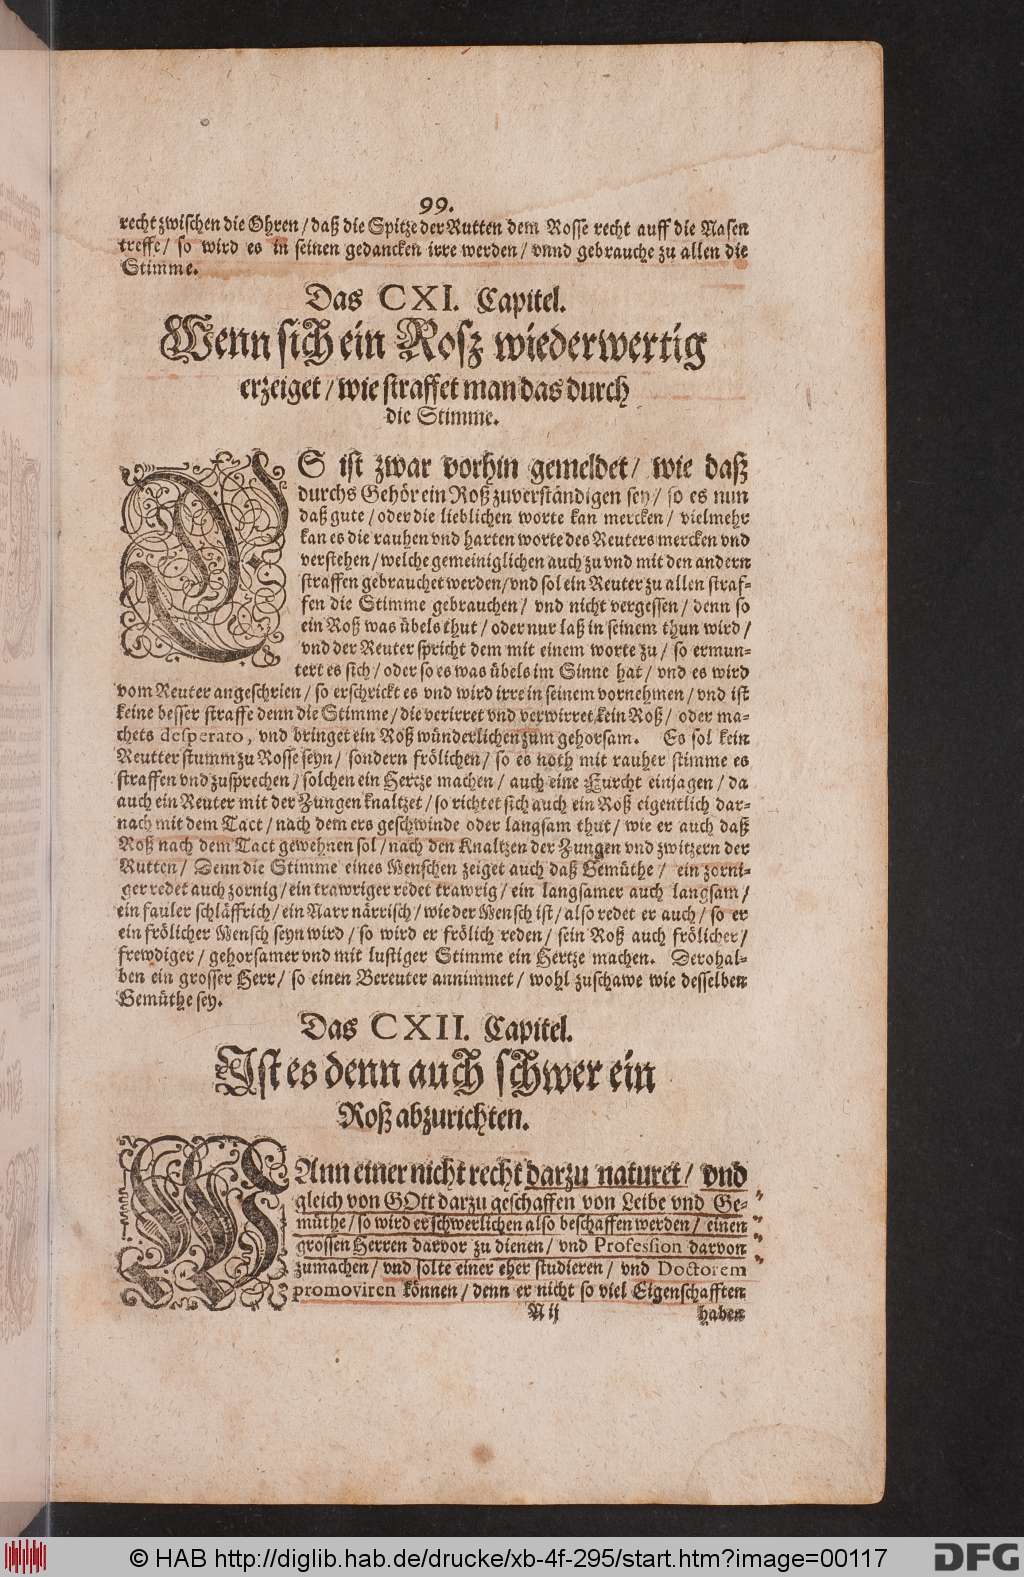 99.
recht zwischen die Ohren / daß die Spitze der Rutten dem Rosse recht auff die Nasen
treffe / so wird es in seinen gedancken irre werden / vnnd gebrauche zu allen die
Stimme.
Das CXI. Capitel.
Wenn sich ein Rosz wiederwertig
erzeiget / wie straffet man das durch
die Stimme.
ES ist zwar vorhin gemeldet / wie daß
durchs Gehör ein Roß zuverständigen sey / so es nun
daß gute / oder die lieblichen worte kan mercken / vielmehr
kan es die rauhen vnd harten worte des Reuters mercken vnd
verstehen / welche gemeiniglichen auch zu vnd mit den andern
straffen gebrauchet werden / vnd sol ein Reuter zu allen straf-
fen die Stimme gebrauchen / vnd nicht vergessen / denn so
ein Roß was übels thut / oder nur laß in seinem thun wird /
vnd der Reuter spricht dem mit einem worte zu / so ermun-
tert es sich / oder so es was übels im Sinne hat / vnd es wird
vom Reuter angeschrien / so erschrickt es vnd wird irre in seinem vornehmen / vnd ist
keine besser straffe denn die Stimme / die verirret vnd verwirret kein Roß / oder ma-
chets desperato, vnd bringet ein Roß wünderlichen zum gehorsam. Es sol kein
Reutter stumm zu Rosse seyn / sondern frölichen / so es noth mit rauher stimme es
straffen vnd zusprechen / solchen ein Hertze machen / auch eine Furcht einjagen / da
auch ein Reuter mit der Zungen knaltzet / so richtet sich auch ein Roß eigentlich dar-
nach mit dem Tact / nach dem ers geschwinde oder langsam thut / wie er auch daß
Roß nach dem Tact gewehnen sol / nach den Knaltzen der Zungen vnd zwitzern der
Rutten / Denn die Stimme eines Menschen zeiget auch daß Gemüthe / ein zorni-
ger redet auch zornig / ein trawriger redet trawrig / ein langsamer auch langsam /
ein fauler schläffrich / ein Narr närrisch / wie der Mensch ist / also redet er auch / so er
ein frölicher Mensch seyn wird / so wird er frölich reden / sein Roß auch frölicher /
frewdiger / gehorsamer vnd mit lustiger Stimme ein Hertze machen. Derohal-
ben ein grosser Herr / so einen Bereuter annimmet / wohl zuschawe wie desselben
Gemüthe sey.
Das CXII. Capitel.
Ist es denn auch schwer ein
Roß abzurichten.
WAnn einer nicht recht darzu naturet / vnd
gleich von GOtt darzu geschaffen von Leibe vnd Ge-
müthe / so wird er schwerlichen also beschaffen werden / einen
grossen Herren darvor zu dienen / vnd Profession darvon
zumachen / vnd solte einer eher studieren / vnd Doctorem
promoviren können / denn er nicht so viel Eigenschafften
N ij haben
© HAB http://diglib.hab.de/drucke/xb-4f-295/start.htm?image=00117 DFG